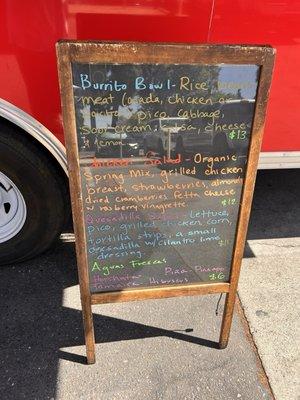 Burrito Bowl - Rice,
meat (asada, chicken or
pico, cabbage,
sour cream, salsa, cheese
& lemon $13
Chicken Salad - Organic
Spring Mix, grilled chicken
breast, strawberries, almonds
dried cranberries Fetta cheese
w rasberry vinagrette $12
Quesadilla Salad - Lettuce,
Pico, grilled chicken corn,
tortilla strips, a small
quesadilla w/ cilantro lime
dressing $11
Aguas Frescas
Horchata Piña
Jamaica Hibiscus $6